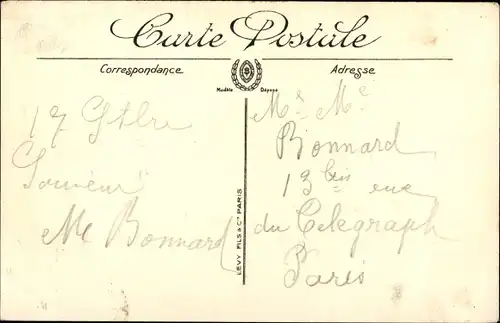 Carte Postale
Correspondance
Adresse
Modèle Déposé
17
Souvenir
Me Bonnard
LEVY FILS & Cie PARIS
Mr Me
Bonnard
13 bis rue
du Télégraph
Paris